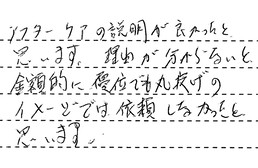 アフターケアの説明が良かったと
思います。理由が分からないと
金額的に優位でも丸投げの
イメージでは依頼しなかったと
思います。